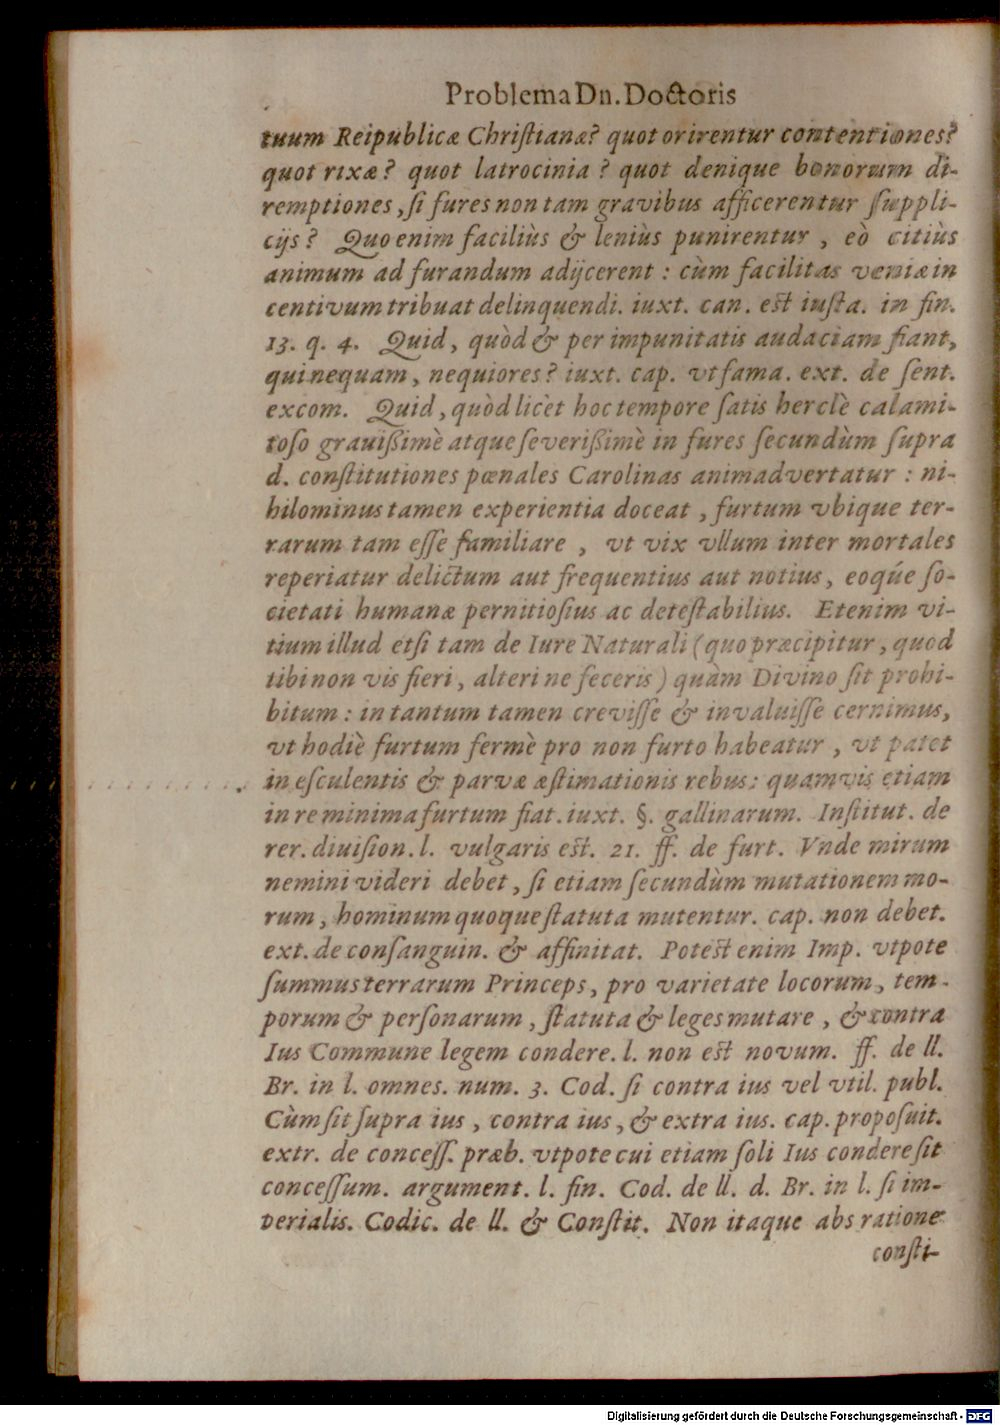 Problema Dn. Doctoris
tuum Reipublicæ Chriſtianæ? quot orirentur contentiones?
quot rixæ? quot latrocinia? quot denique bonorum di-
remptiones, ſi fures non tam gravibus afficerentur ſuppli-
cijs? Quo enim faciliùs & leniùs punirentur, eò citiùs
animum ad furandum adijcerent: cùm facilitas veniæ in
centivum tribuat delinquendi. iuxt. can. est iuſta. in fin.
13. q. 4. Quid, quòd & per impunitatis audaciam fiant,
qui nequam, nequiores? iuxt. cap. vt fama. ext. de ſent.
excom. Quid, quòd licèt hoc tempore ſatis herclè calami-
toſo grauißimè atque ſeverißimè in fures ſecundùm ſupra
d. conſtitutiones pœnales Carolinas animadvertatur: ni-
hilominus tamen experientia doceat, furtum vbique ter-
rarum tam eſſe familiare, vt vix vllum inter mortales
reperiatur delictum aut frequentius aut notius, eoqúe ſo-
cietati humanæ pernitioſius ac deteſtabilius. Etenim vi-
tium illud etſi tam de Iure Naturali (quo præcipitur, quod
tibi non vis fieri, alteri ne feceris) quàm Divino ſit prohi-
bitum: in tantum tamen creviſſe & invaluiſſe cernimus,
vt hodiè furtum fermè pro non furto habeatur, vt patet
in eſculentis & parvæ æſtimationis rebus: quamvis etiam
in re minima furtum fiat. iuxt. §. gallinarum. Inſtitut. de
rer. diuiſion. l. vulgaris est. 21. ff. de furt. Vnde mirum
nemini videri debet, ſi etiam ſecundùm mutationem mo-
rum, hominum quoque ſtatuta mutentur. cap. non debet.
ext. de conſanguin. & affinitat. Potest enim Imp. vtpote
ſummus terrarum Princeps, pro varietate locorum, tem-
porum & perſonarum, ſtatuta & leges mutare, & contra
Ius Commune legem condere. l. non est novum. ff. de ll.
Br. in l. omnes. num. 3. Cod. ſi contra ius vel vtil. publ.
Cùm ſit ſupra ius, contra ius, & extra ius. cap. propoſuit.
extr. de conceſſ. præb. vtpote cui etiam ſoli Ius condere ſit
conceſſum. argument. l. fin. Cod. de ll. d. Br. in l. ſi im-
perialis. Codic. de ll. & Conſtit. Non itaque abs ratione
conſti-
Digitalisierung gefördert durch die Deutsche Forschungsgemeinschaft - DFG